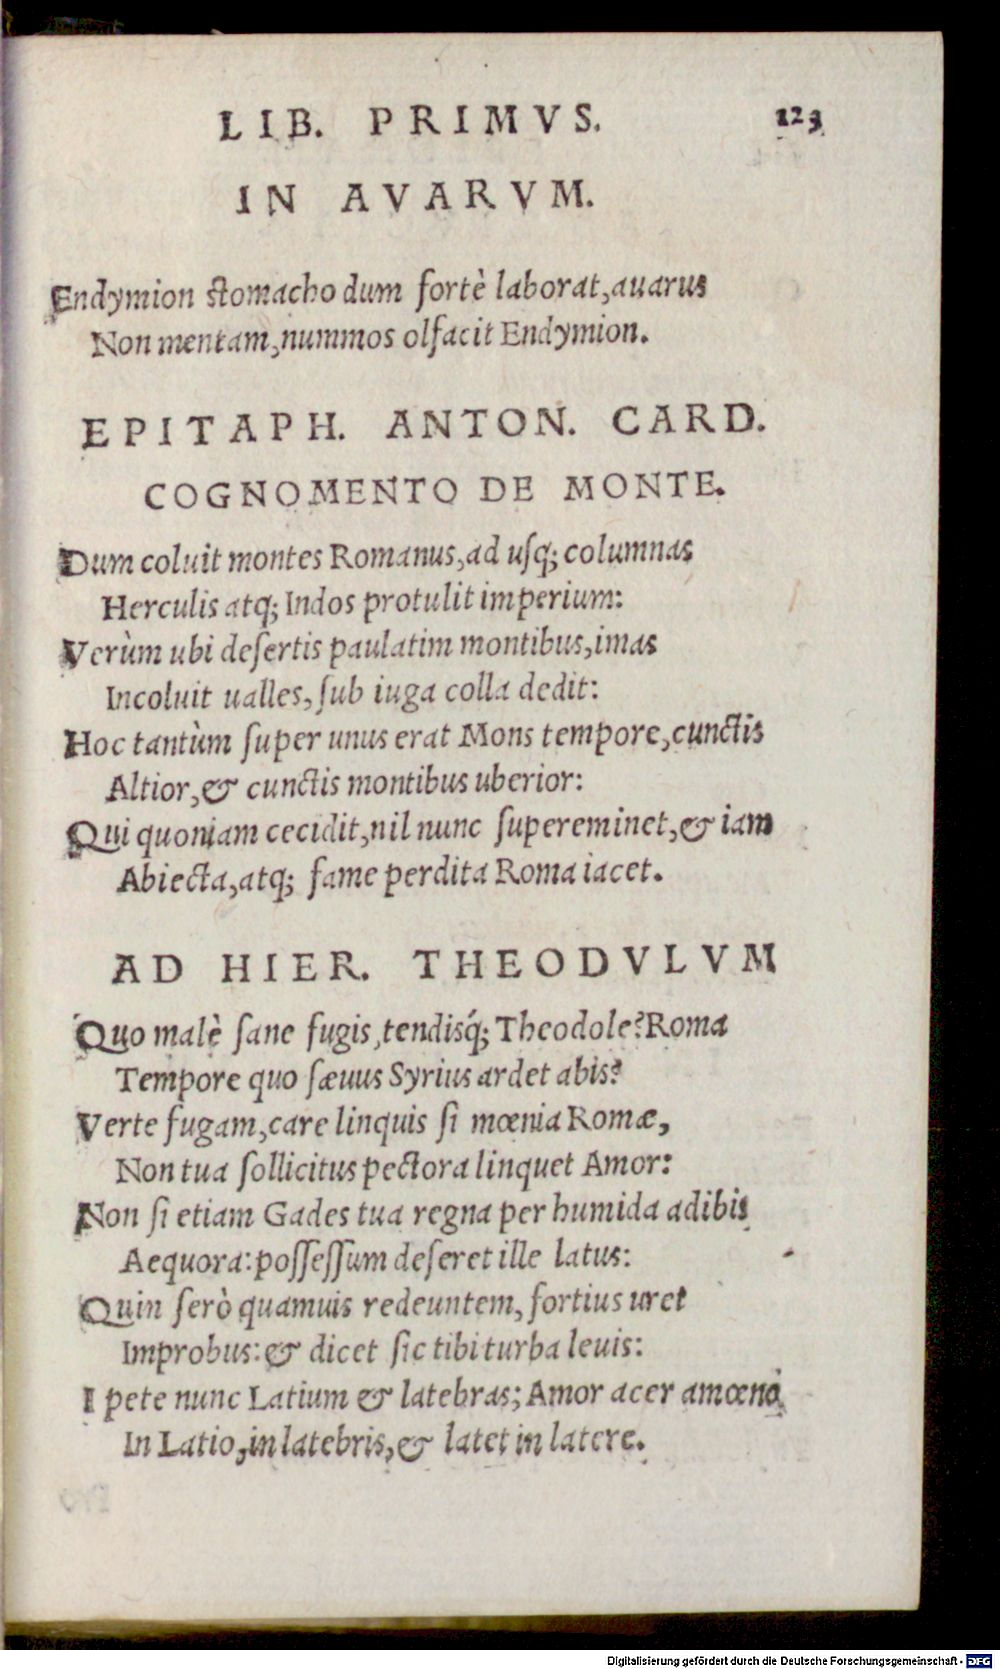 LIB. PRIMVS. 123
IN AVARVM.
Endymion stomacho dum fortè laborat, auarus
Non mentam, nummos olfacit Endymion.
EPITAPH. ANTON. CARD.
COGNOMENTO DE MONTE.
Dum coluit montes Romanus, ad uſq; columnas
Herculis atq; Indos protulit imperium:
Verùm ubi deſertis paulatim montibus, imas
Incoluit ualles, ſub iuga colla dedit:
Hoc tantùm ſuper unus erat Mons tempore, cunctis
Altior, & cunctis montibus uberior:
Qui quoniam cecidit, nil nunc ſupereminet, & iam
Abiecta, atq; fame perdita Roma iacet.
AD HIER. THEODVLVM
Quo malè ſane fugis, tendisq́; Theodole? Roma
Tempore quo ſæuus Syrius ardet abis?
Verte fugam, care linquis ſi mœnia Romæ,
Non tua ſollicitus pectora linquet Amor:
Non ſi etiam Gades tua regna per humida adibis
Aequora: poſſeſſum deſeret ille latus:
Quin ſerò quamuis redeuntem, fortius uret
Improbus: & dicet ſic tibi turba leuis:
I pete nunc Latium & latebras; Amor acer amœno
In Latio, in latebris, & latet in latere.
Digitalisierung gefördert durch die Deutsche Forschungsgemeinschaft - DFG